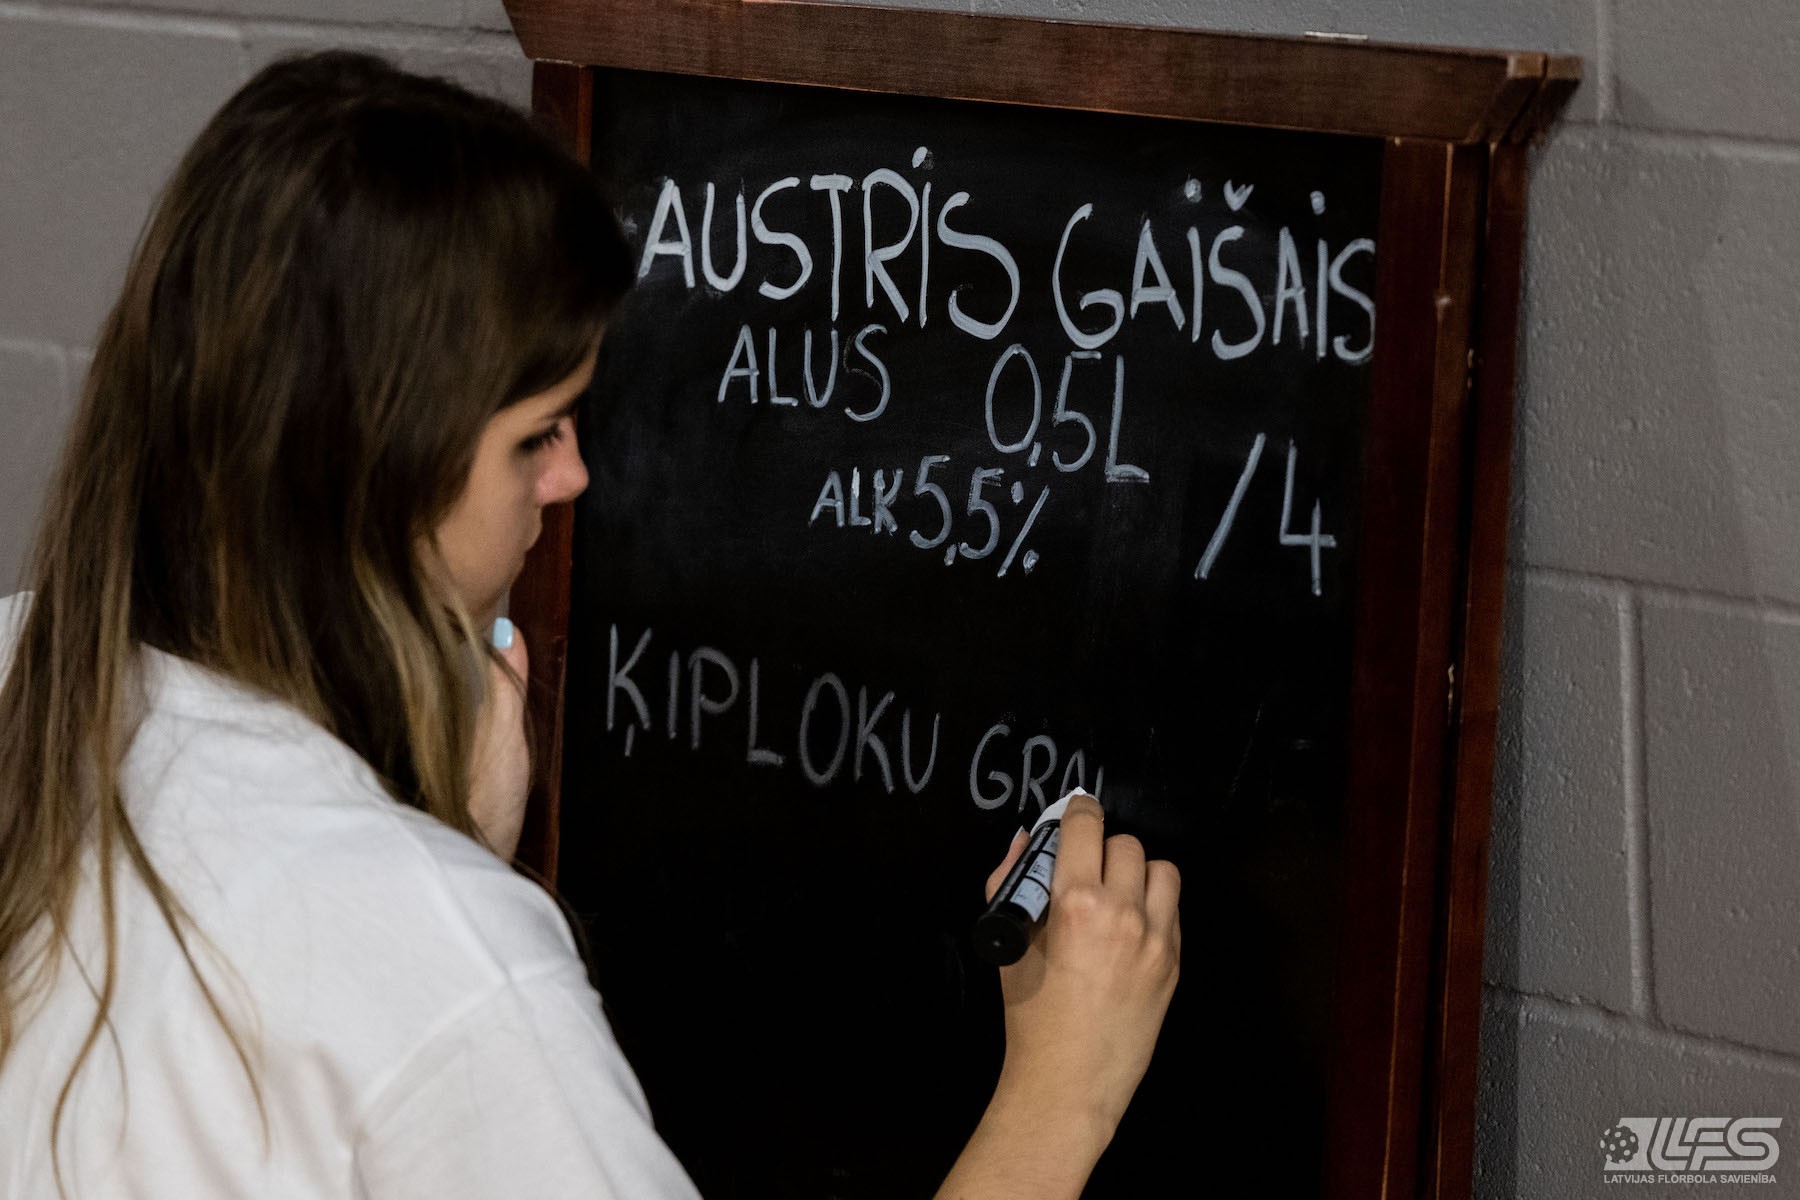 AUSTRiS GAiŠAiS
ALUS 0,5L
ALK 5,5% /4
ĶIPLOKU GRA
LFS
LATVIJAS FLORBOLA SAVIENĪBA